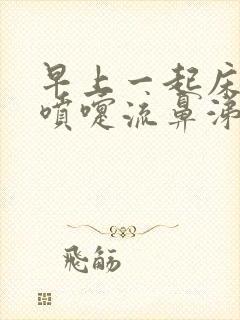 早上一起床
噴嚏流鼻涕
飛觴